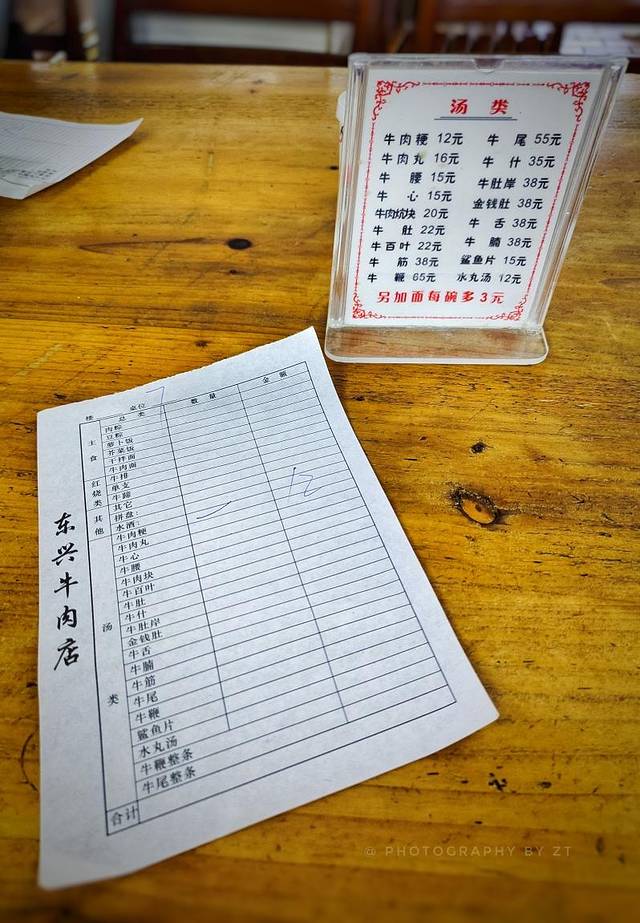 汤 类
牛肉粳 12元 牛 尾 55元
牛肉丸 16元 牛 什 35元
牛 腰 15元 牛肚岸 38元
牛 心 15元 金钱肚 38元
牛肉炕块 20元 牛 舌 38元
牛 肚 22元 牛 腩 38元
牛百叶 22元 鲨鱼片 15元
牛 筋 38元 水丸汤 12元
牛 鞭 65元
另加面每碗多3元
东兴牛肉店
楼 桌位
总 类 数 量 金 额
主食
肉粽
豆粽
萝卜饭
芥菜饭
干拌面
牛肉面
红烧类
牛排
单支
牛蹄
其它
其他
拼盘:
水酒:
汤类
牛肉粳
牛肉丸
牛心
牛腰
牛肉块
牛百叶
牛肚
牛什
牛肚岸
金钱肚
牛舌
牛腩
牛筋
牛尾
牛鞭
鲨鱼片
水丸汤
牛鞭整条
牛尾整条
合计
@ PHOTOGRAPHY BY ZT